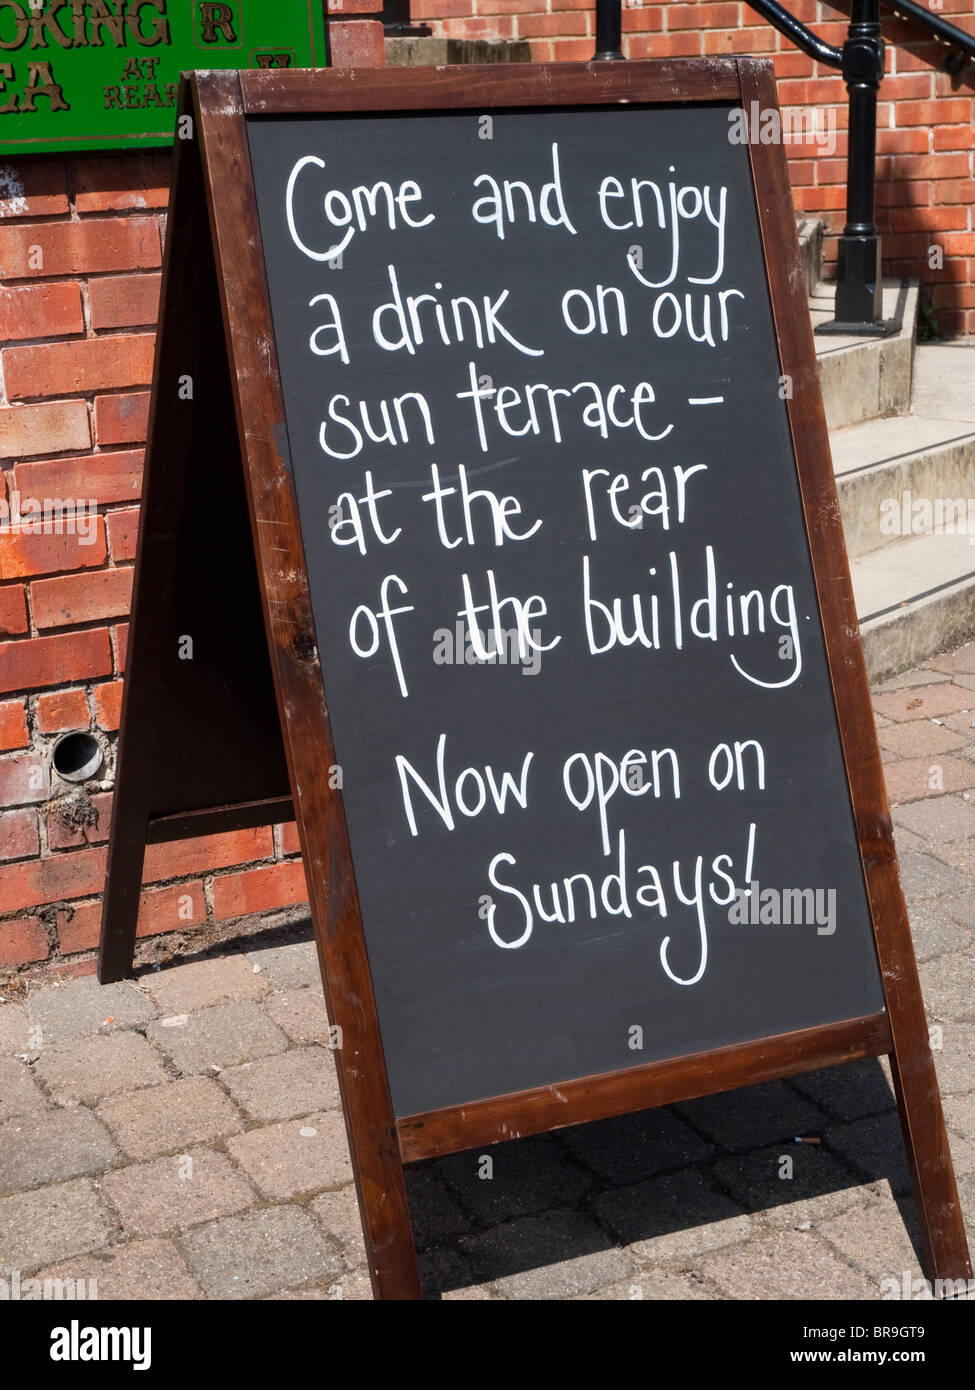 OKING R
EA AT
REAR
Come and enjoy
a drink on our
sun terrace –
at the rear
of the building.
Now open on
Sundays!
alamy
alamy
Image ID: BR9GT9
www.alamy.com